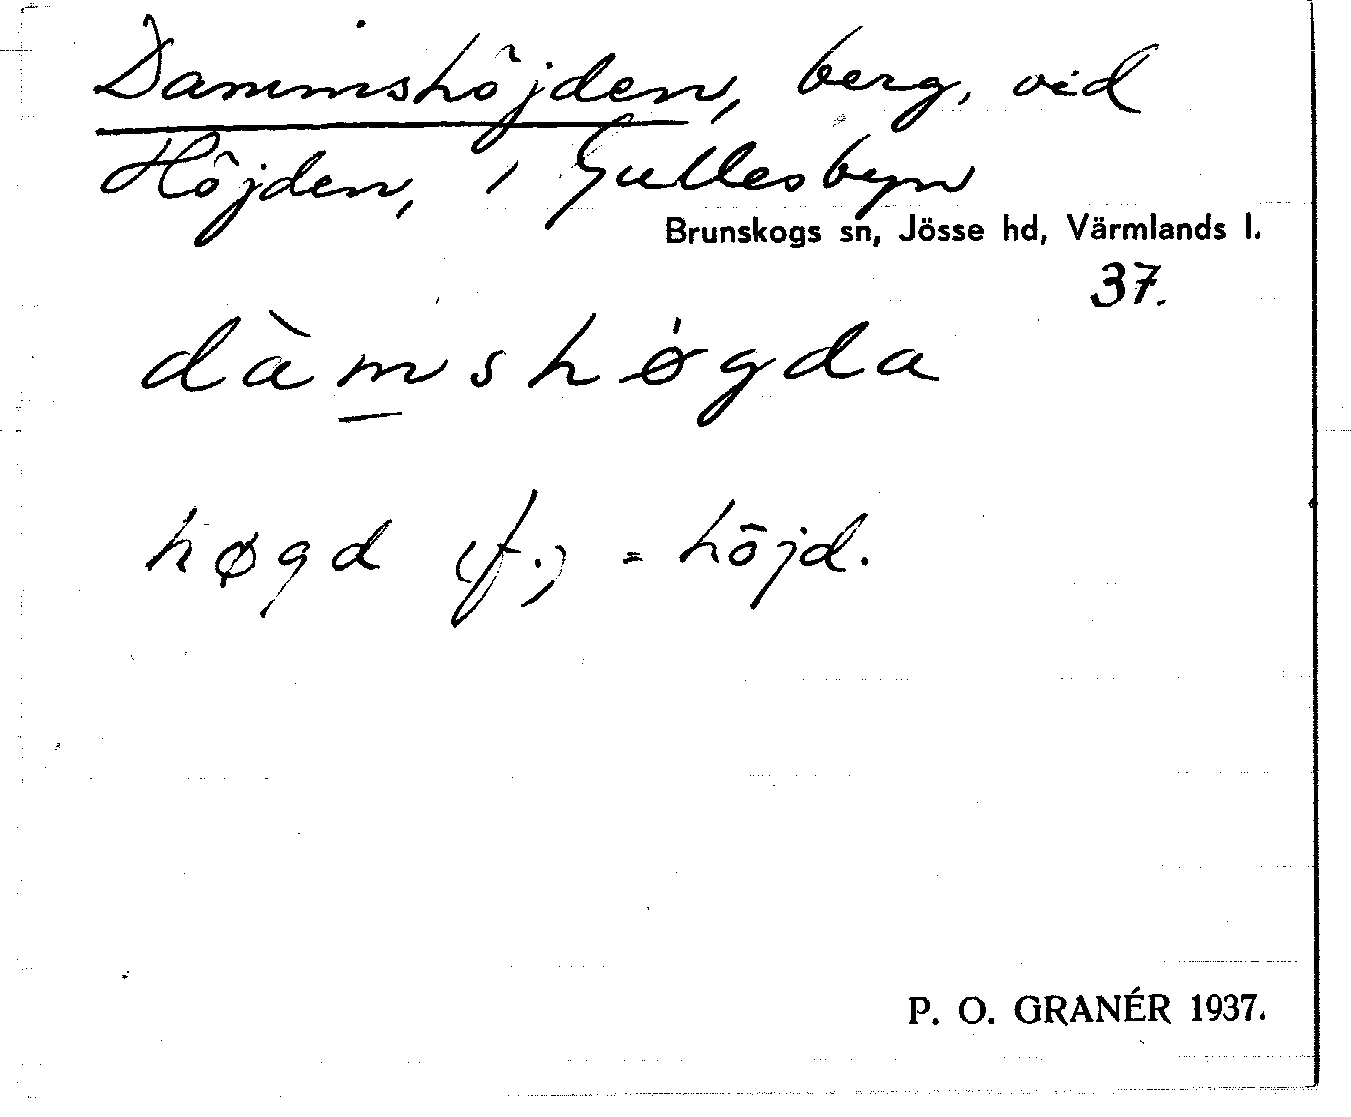 Dammshöjden, berg, vid
Höjden, i Gullesbyn
Brunskogs sn, Jösse hd, Värmlands l.
37.
dàmshøgda
høgd (f.) = höjd.
P. O. GRANÉR 1937.